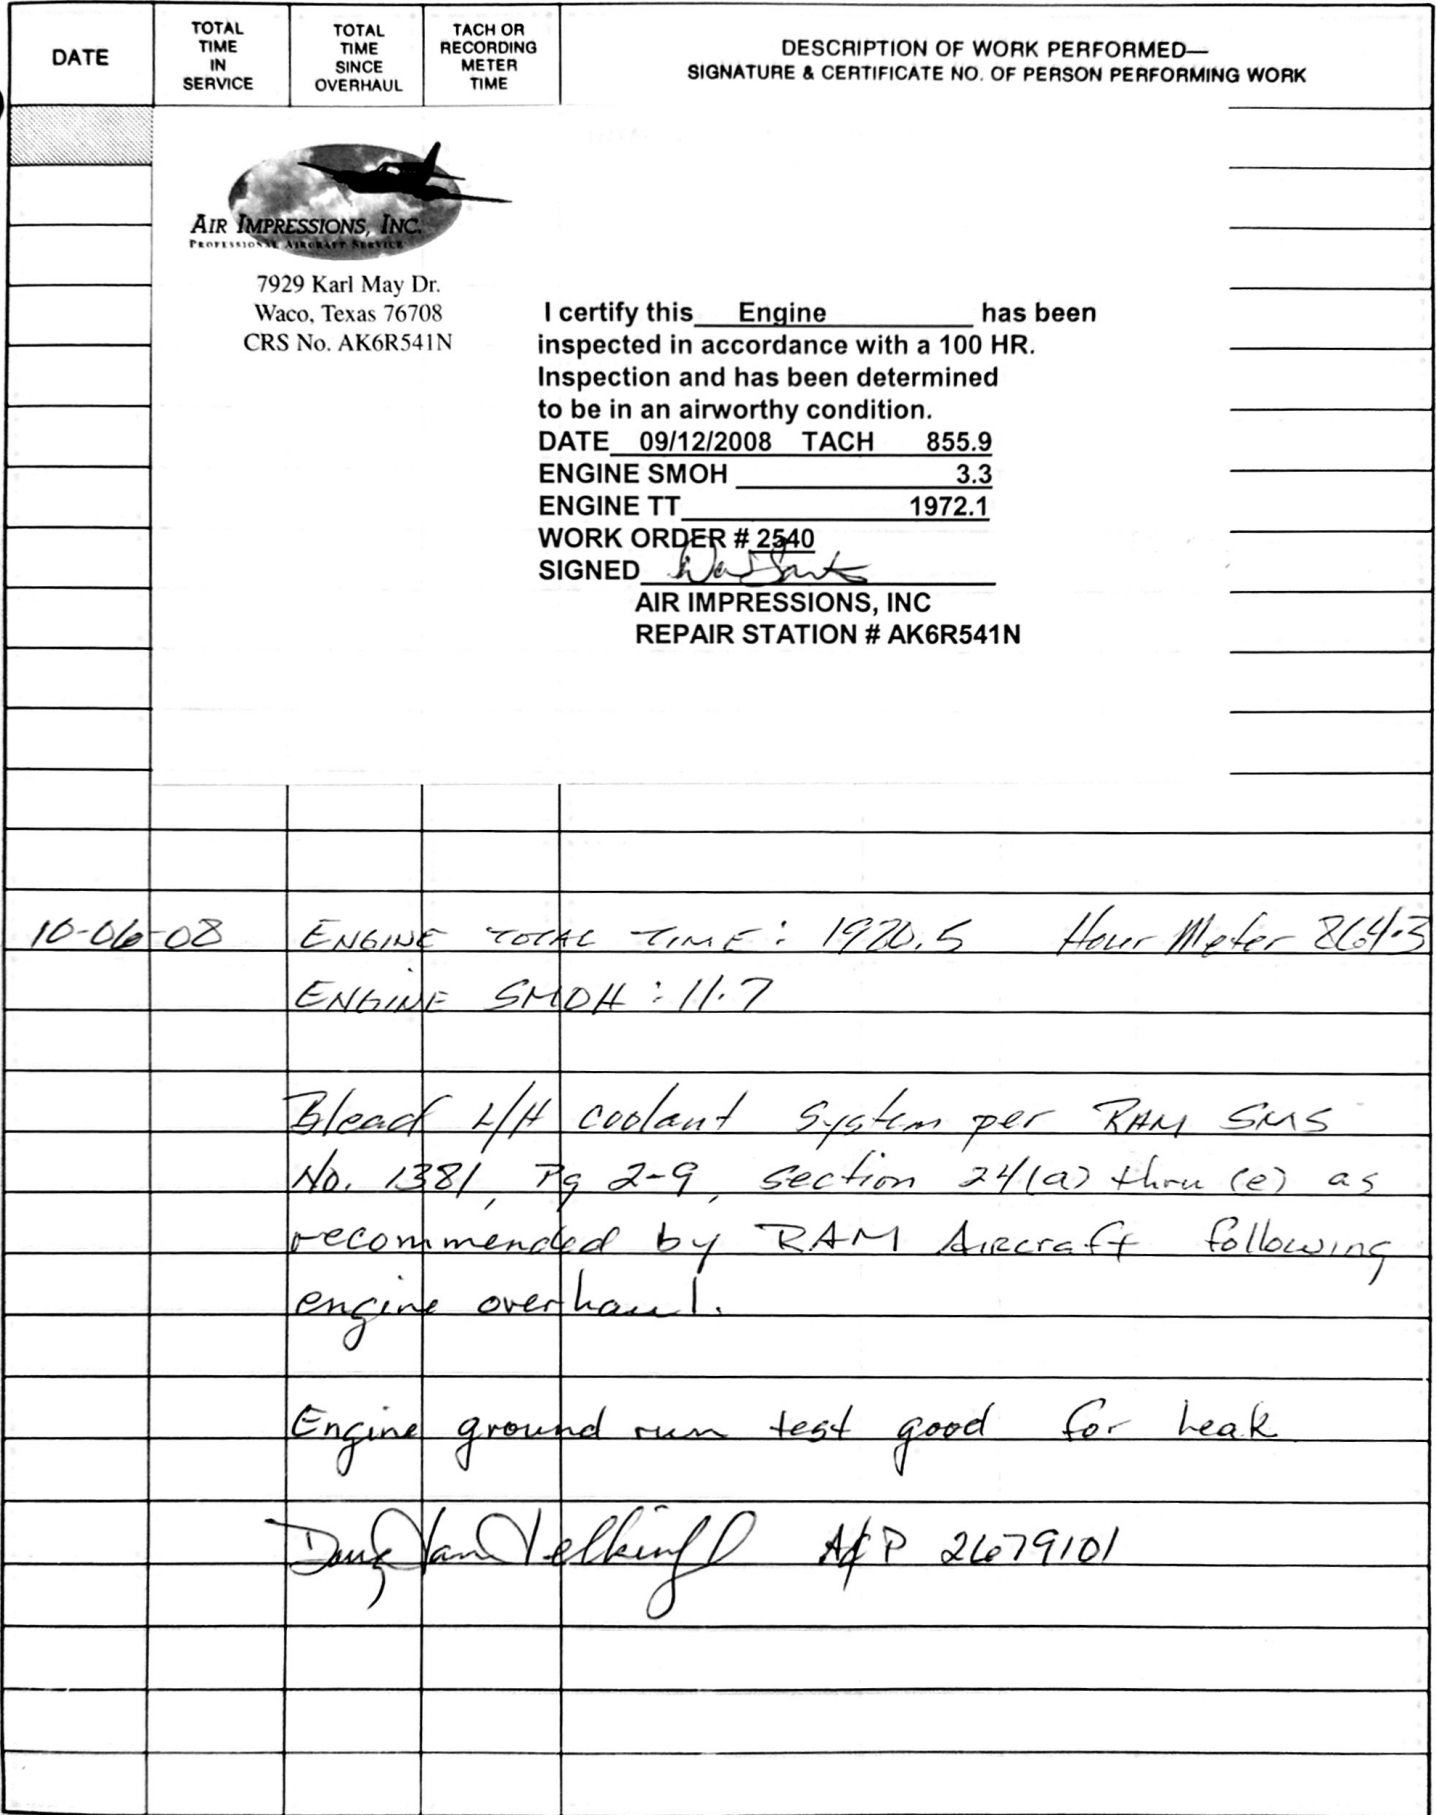 DATE
TOTAL TIME IN SERVICE
TOTAL TIME SINCE OVERHAUL
TACH OR RECORDING METER TIME
DESCRIPTION OF WORK PERFORMED—
SIGNATURE & CERTIFICATE NO. OF PERSON PERFORMING WORK
AIR IMPRESSIONS, INC.
PROFESSIONAL AIRCRAFT SERVICE
7929 Karl May Dr.
Waco, Texas 76708
CRS No. AK6R541N
I certify this Engine has been
inspected in accordance with a 100 HR.
Inspection and has been determined
to be in an airworthy condition.
DATE 09/12/2008 TACH 855.9
ENGINE SMOH 3.3
ENGINE TT 1972.1
WORK ORDER # 2540
SIGNED
AIR IMPRESSIONS, INC
REPAIR STATION # AK6R541N
10-06-08 ENGINE TOTAL TIME: 1920.5 Hour Meter 864.3
ENGINE SMOH: 11.7
Blead L/H coolant System per RAM SMS
No. 1381, Pg 2-9, section 24(a) thru (e) as
recommended by RAM Aircraft following
engine overhaul.
Engine ground run test good for leak
Doug Van A&P 2679101